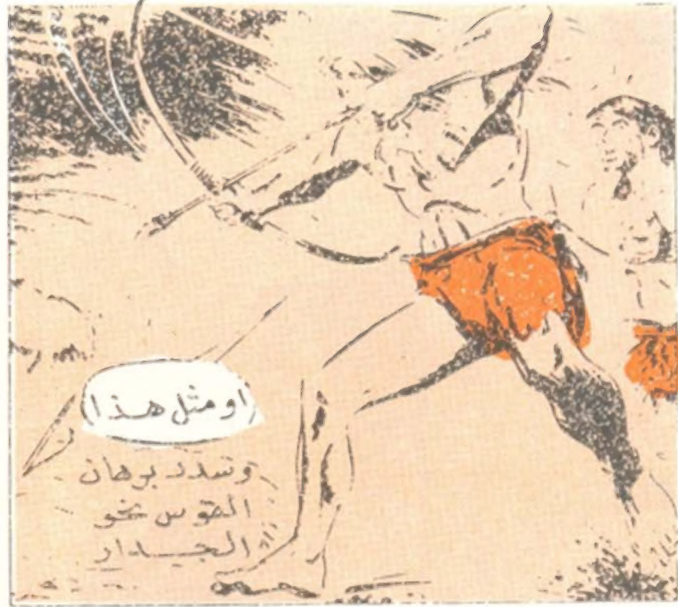 او مثل هذا
وسدد برهان
القوس نحو
الجدار